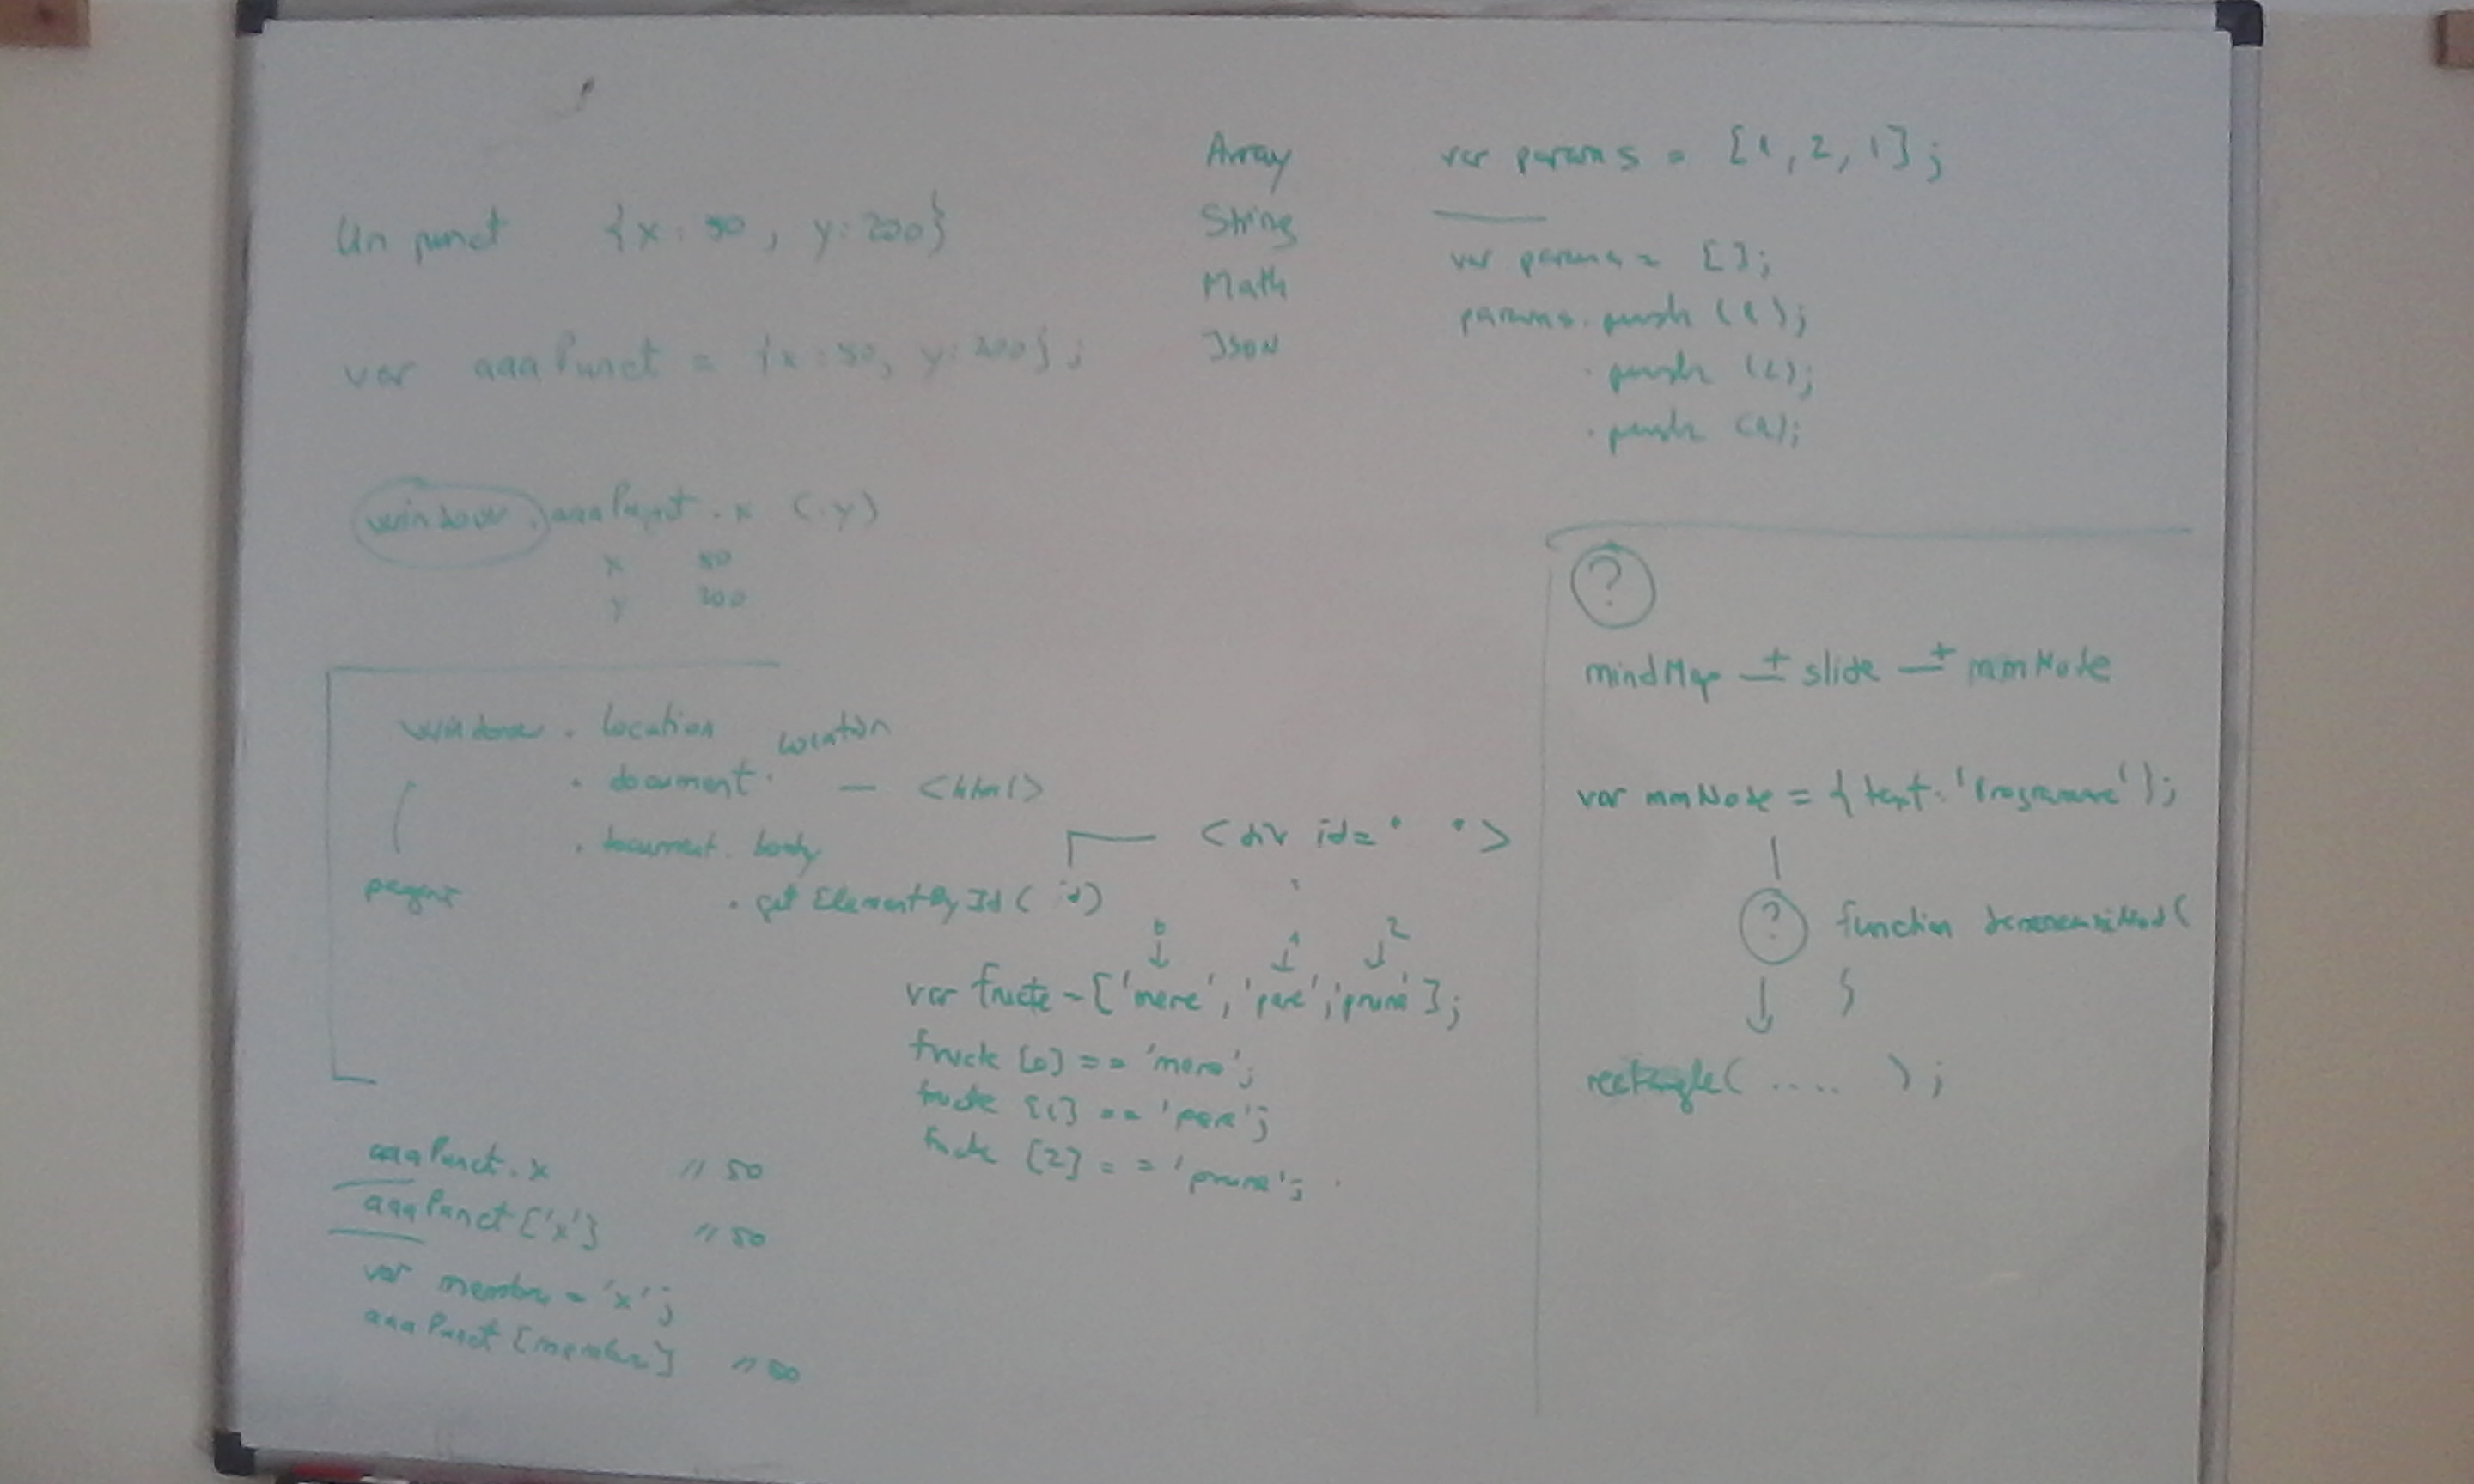 Un punct {x: 50, y: 200}
var aaaPunct = {x: 50, y: 200};
window.aaaPunct.x (.y)
x 50
y 200
window . location
. document . location — <html>
. document. body
pagini
. getElementById( id)
<div id=" ">
0 1 2
var fructe = ['mere', 'pere', 'prune'];
fructe [0] == 'mere';
fructe [1] == 'pere';
fructe [2] == 'prune';
aaaPunct.x // 50
aaaPunct['x'] // 50
var membru = 'x';
aaaPunct[membru] // 50
Array
String
Math
JSON
var params = [1, 2, 1];
var params = [];
params.push (1);
.push (2);
.push (1);
?
mindMap + slide + mmNode
var mmNode = {text: 'Programare'};
? function deseneazaNod(
}
rectangle( .... );